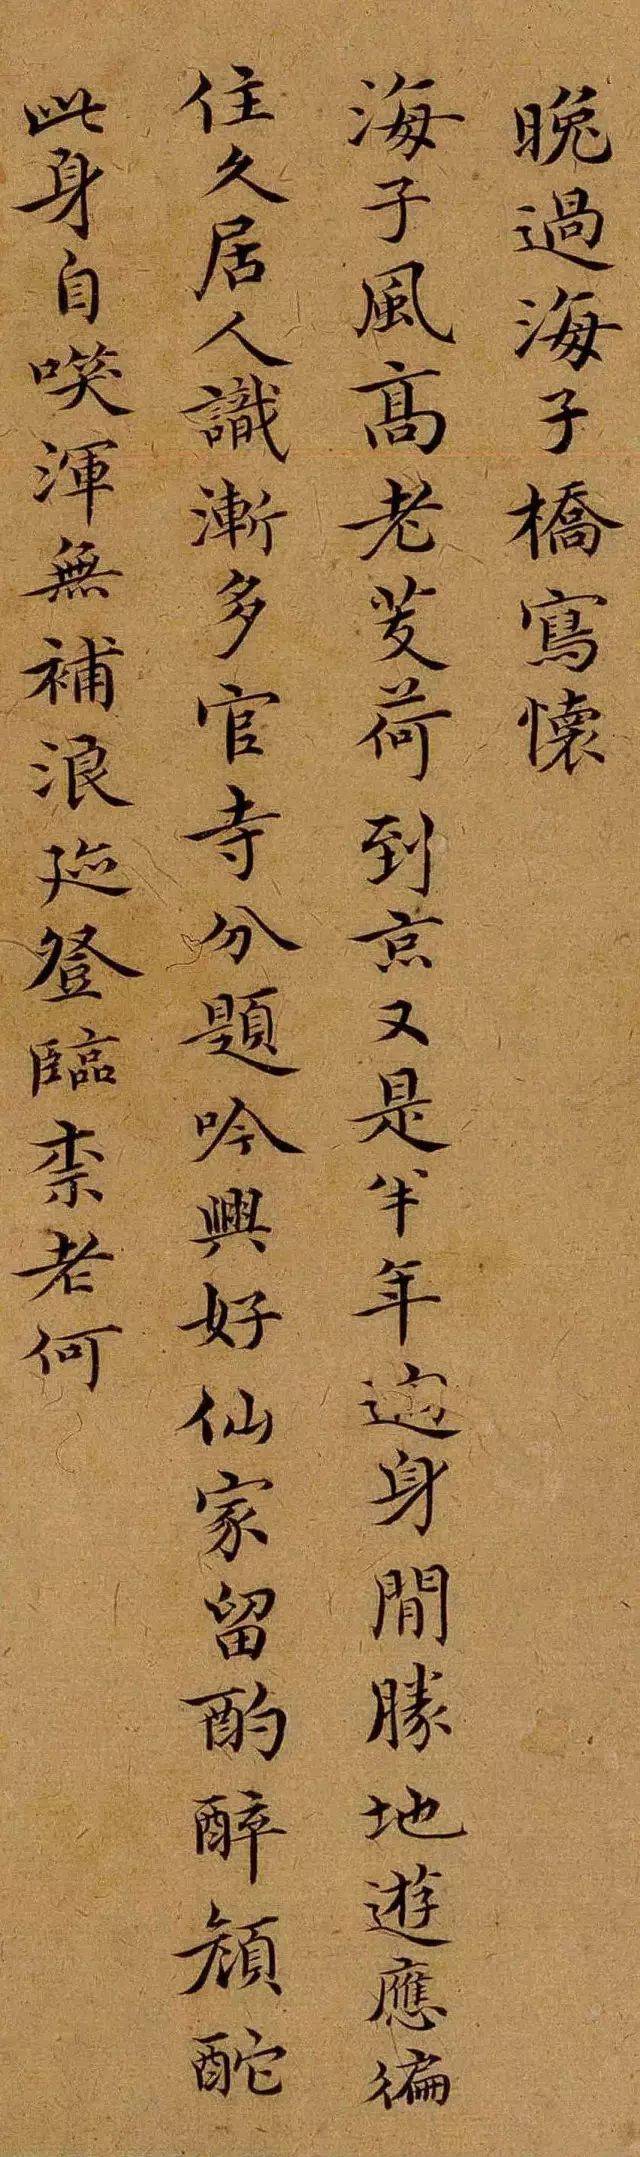 晚過海子橋寫懷
海子風高老芰荷到京又是半年過身閒勝地遊應徧
住久居人識漸多官寺分題吟興好仙家留酌醉顏酡
此身自嘆渾無補浪跡登臨柰老何